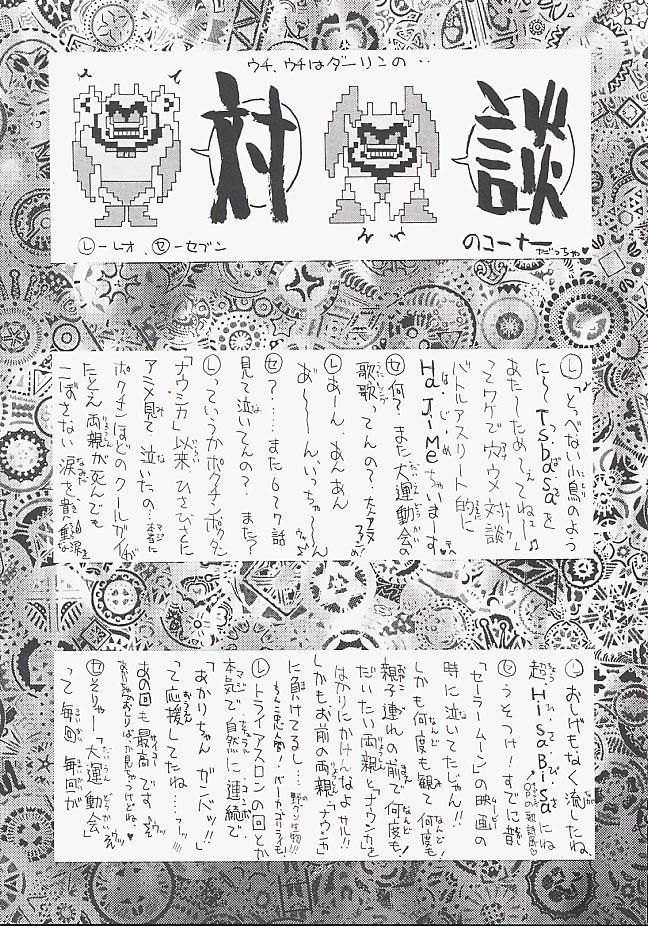 ウチ、ウチはダーリンの‥
対談
のコーナーだっちゃ♥
Ⓛーレオ、Ⓢーセブン
Ⓛ「とべない小鳥のよう
に〜TSubaSaを
あた〜ためてえてねー」♫
ってワケでウワメ対談
バトルアスリート的に
HaJiMeちゃいまーす♥
㋝何?また大運動会の
歌歌ってんの?
Ⓛあーん、あんあん
あ〜〜んいっちゃ〜〜ん
㋝?……また6てク話
見て泣いてんの?また?
Ⓛっていうかボクチンボクタン
「ナウシカ」以来ひさびさに
アニメ見て泣いたの。本当に
ボクチンほどのクールガイが
たとえ両親が死んでも
こぼさない涙を
Ⓛおしげもなく流したね、
超HiSaBiSaにね
㋝うそつけ!すでに昔
「セーラームーン」の映画の
時に泣いてたじゃん!!
しかも何度も観て何度も!
親子連れの前で何度も!
だいたい両親と「ナウシカ」を
はかりにかけんなよサル!!
しかもお前の両親「ナウシカ」
に負けてるし…
Ⓛトライアスロンの回とか
本気で自然に連続で
「あかりちゃんガンバッ!!」
って応援してたね…
あの回も最高です。
㋝そりゃー「大運動会」
って毎回毎回が